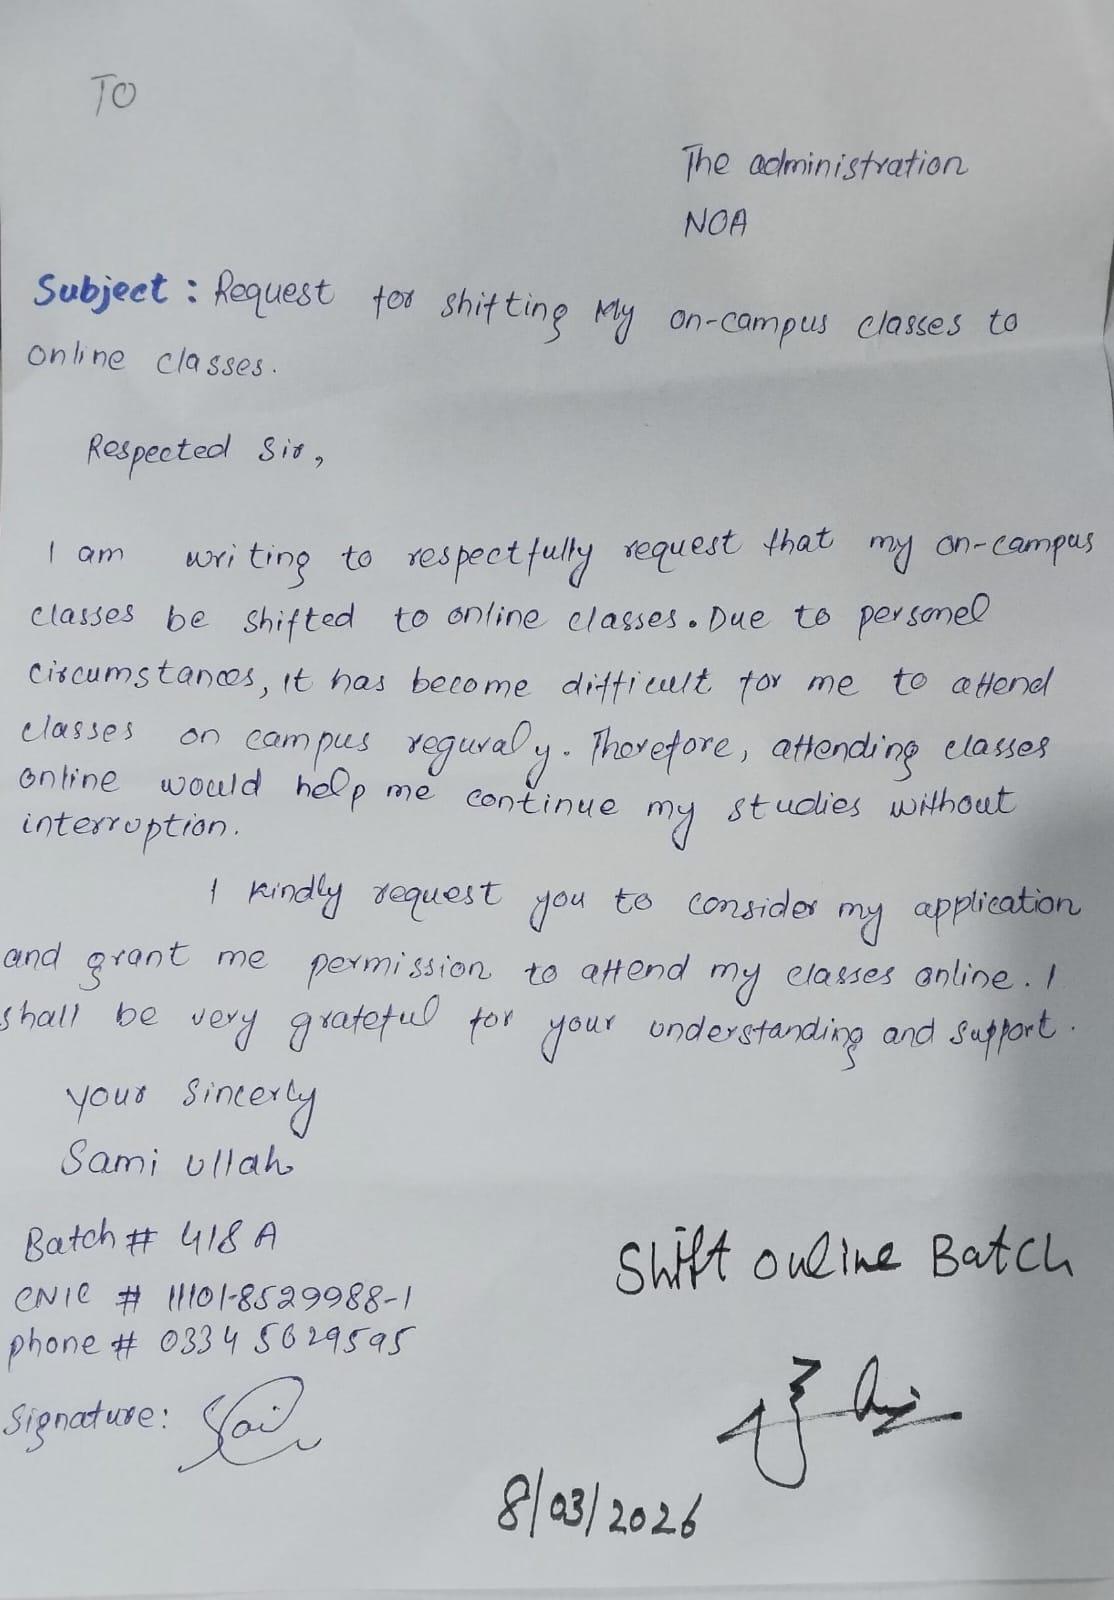 TO
The administration
NOA
Subject : Request for shifting My on-campus classes to
online classes.
Respected Sir,
I am writing to respectfully request that my on-campus
classes be shifted to online classes. Due to personel
circumstances, it has become difficult for me to attend
classes on campus reguraly. Therefore, attending classes
online would help me continue my studies without
interruption.
I kindly request you to consider my application
and grant me permission to attend my classes online. I
shall be very grateful for your understanding and support.
your Sincerly
Sami ullah
Batch # 418 A
CNIC # 11101-8529988-1
phone # 0334 5629595
Signature:
Shift online Batch
8/03/2026